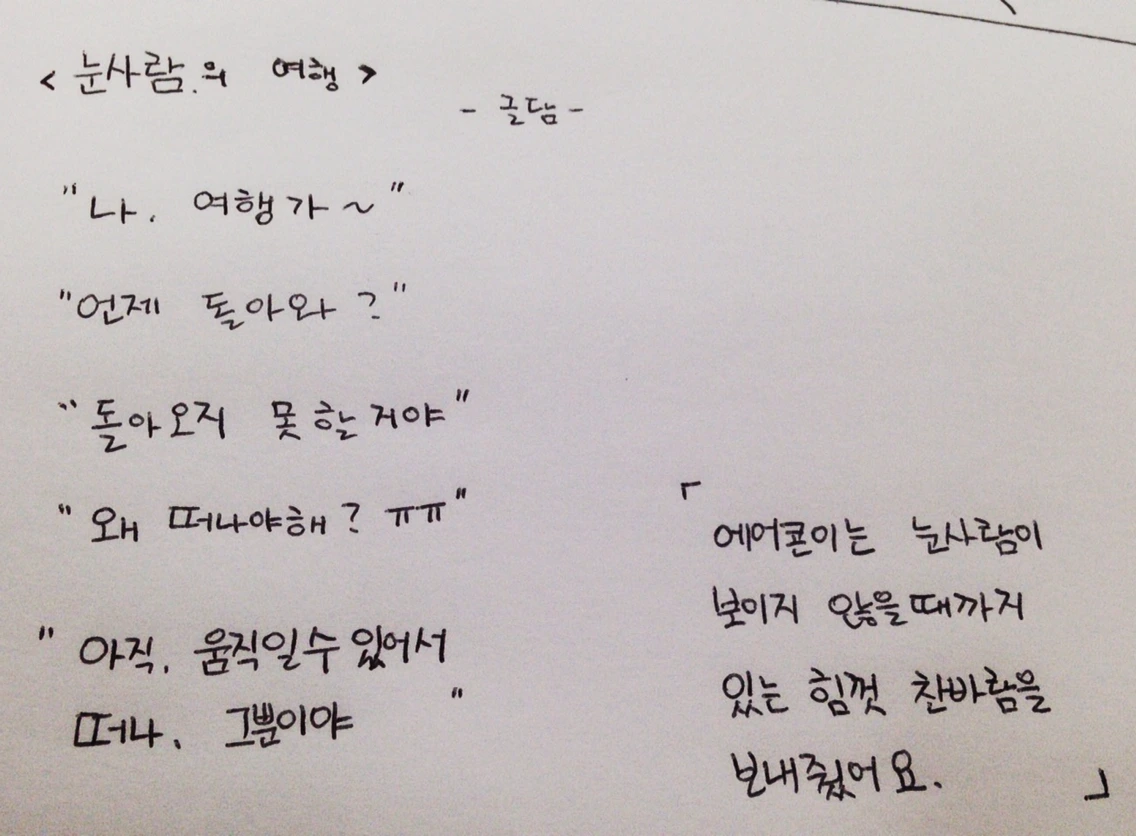 < 눈사람의 여행 >
- 글담 -
"나, 여행가~"
"언제 돌아와?"
"돌아오지 못할거야"
"왜 떠나야해? ㅠㅠ"
"아직, 움직일수있어서
떠나, 그뿐이야"
「
에어콘이는 눈사람이
보이지 않을때까지
있는 힘껏 찬바람을
보내줬어요.
」